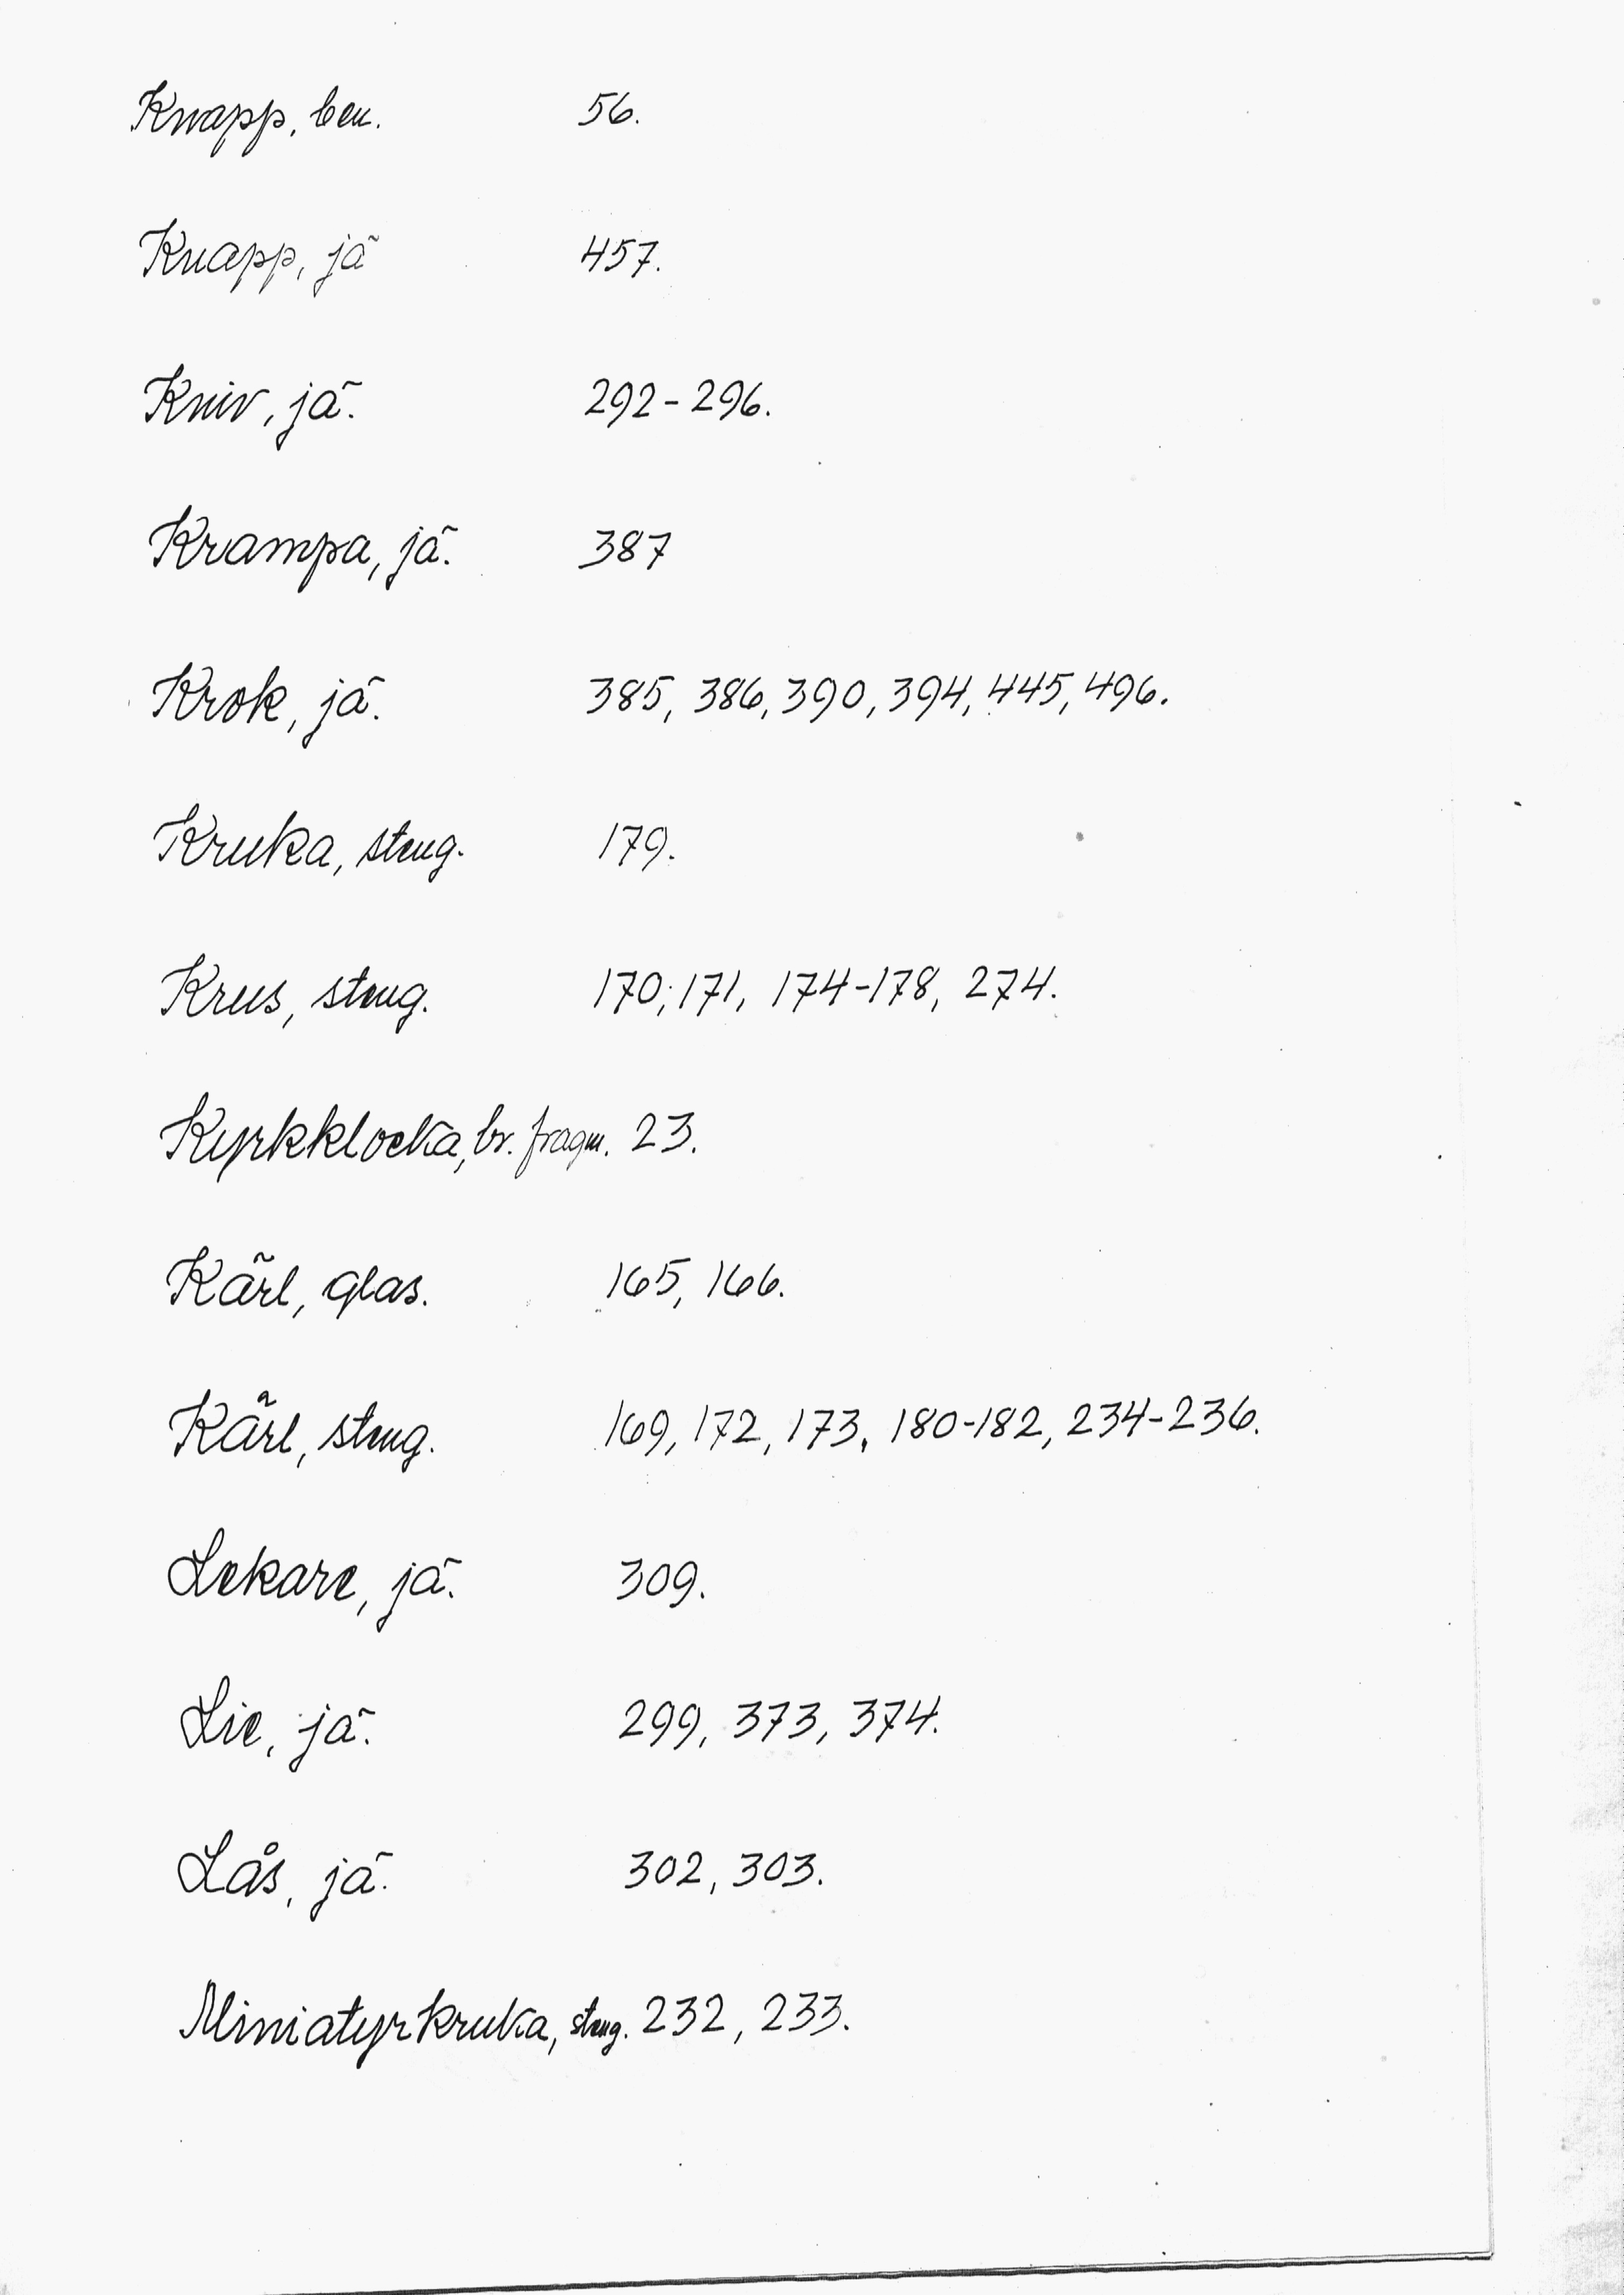 Knapp, ben. 56.
Knapp, jä 457.
Kniv, jä. 292-296.
Krampa, jä. 387
Krok, jä. 385, 386, 390, 394, 445, 496.
Kruka, steng. 179.
Krus, steng. 170, 171, 174-178, 274.
Kyrkklocka, br. fragm. 23.
Kärl, glas. 165, 166.
Kärl, steng. 169, 172, 173, 180-182, 234-236.
Lekare, jä. 309.
Lie, jä. 299, 373, 374.
Lås, jä. 302, 303.
Miniatyrkruka, steng. 232, 233.